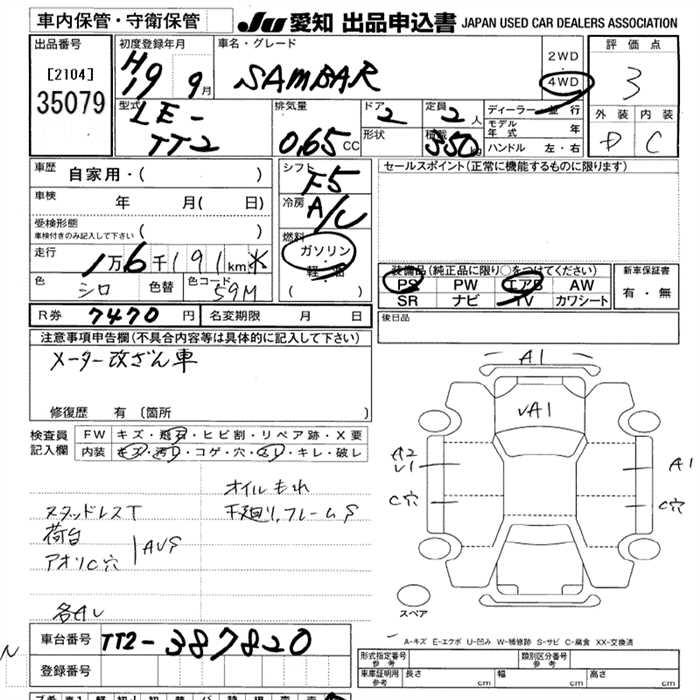 車内保管・守衛保管 JU 愛知 出品申込書 JAPAN USED CAR DEALERS ASSOCIATION
出品番号 初度登録年月 車名・グレード 2WD 評価点
[2104] H19 9月 SAMBAR ・ 4WD 3
35079 型式 排気量 ドア 定員 ディーラー・並行 外装 内装
LE-TT2 0.65 CC 2 2人 モデル年式 年 D C
形状 積載 550 kg ハンドル 左・右
車歴 自家用・( ) シフト F5 セールスポイント (正常に機能するものに限ります)
車検 年 月( 日) 冷房 A/C
受検形態 車検付きのみ記入して下さい ( ) 燃料
走行 1万6千191km ガソリン・軽油 装備品 (純正品に限り○をつけてください) 新車保証書
色 シロ 色替 色コード 59M ( ) PS PW エアB AW 有・無
SR ナビ TV カワシート
R券 7470円 名変期限 月 日 後日品
注意事項申告欄 (不具合内容等は具体的に記入して下さい)
メーター改ざん車 A1
VA1
修復歴 有 (箇所 )
検査員 FW キズ・飛石・ヒビ割・リペア跡・X要
記入欄 内装 キズ・汚レ・コゲ・穴・スレ・キレ・破レ
A2 A1
C穴 C穴
オイルもれ
スタッドレスT 下廻り,フレームS
荷台
アオリC穴
スペア
車台番号 TT2-387820 A-キズ E-エクボ U-凹み W-補修跡 S-サビ C-腐食 XX-交換済
登録番号 形式指定番号 参考 類別区分番号 参考
車庫証明用 参考 長さ cm 幅 cm 高さ cm